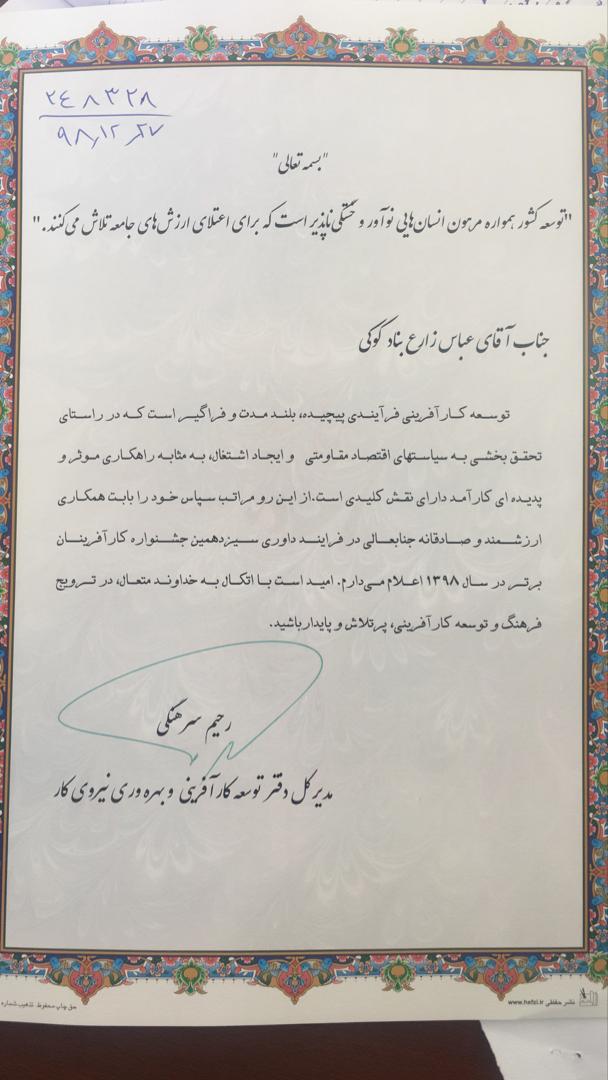 ۲۴۸۳۲۸
۹۸٫۱۲٫۲۷
"بسمه تعالی"
"توسعه کشور همواره مرهون انسان‌هایی نوآور و خستگی‌ناپذیر است که برای اعتلای ارزش‌های جامعه تلاش می‌کنند."
جناب آقای عباس زارع بنادکوکی
توسعه کارآفرینی فرآیندی پیچیده، بلند مدت و فراگیر است که در راستای
تحقق بخشی به سیاستهای اقتصاد مقاومتی و ایجاد اشتغال، به مثابه راهکاری موثر و
پدیده ای کارآمد دارای نقش کلیدی است.از این رو مراتب سپاس خود را بابت همکاری
ارزشمند و صادقانه جنابعالی در فرایند داوری سیزدهمین جشنواره کارآفرینان
برتر در سال ۱۳۹۸ اعلام می‌دارم. امید است با اتکال به خداوند متعال، در ترویج
فرهنگ و توسعه کارآفرینی، پرتلاش و پایدار باشید.
رحیم سرهنگی
مدیرکل دفتر توسعه کارآفرینی و بهره وری نیروی کار
نشر حفظی www.hefzi.ir
حق چاپ محفوظ تذهیب شماره